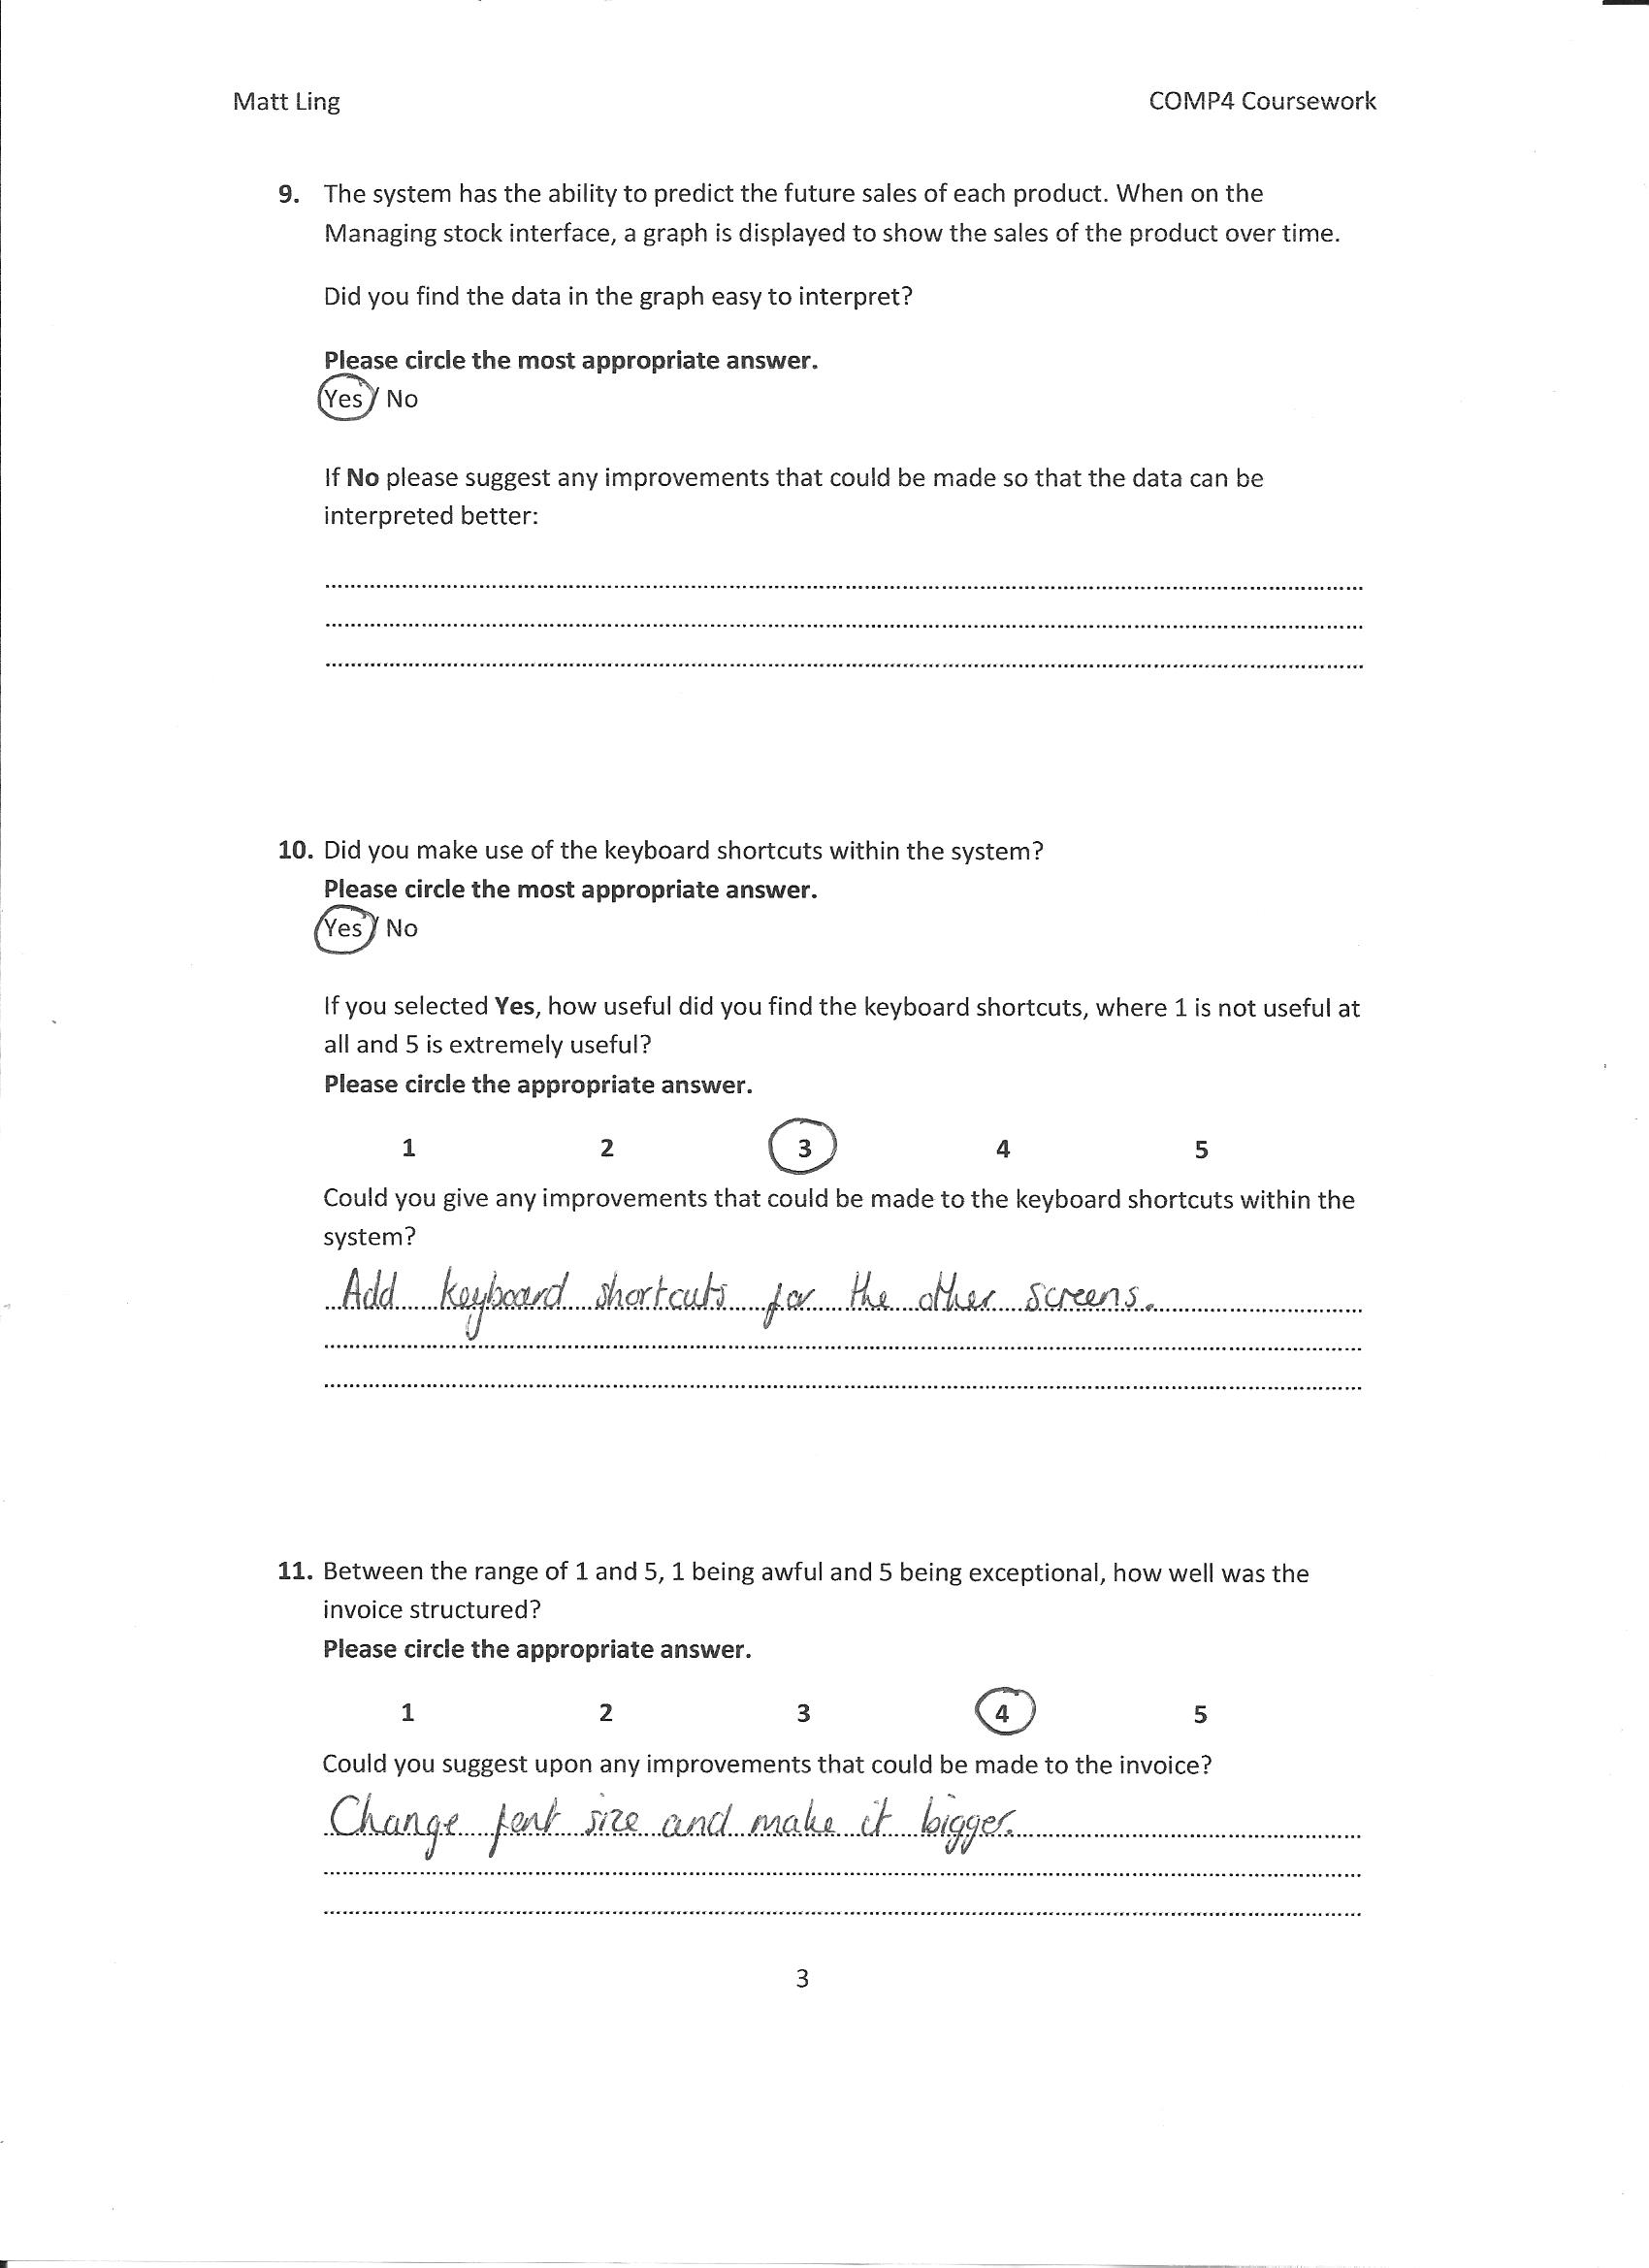 Matt Ling COMP4 Coursework
9. The system has the ability to predict the future sales of each product. When on the
Managing stock interface, a graph is displayed to show the sales of the product over time.
Did you find the data in the graph easy to interpret?
Please circle the most appropriate answer.
Yes / No
If No please suggest any improvements that could be made so that the data can be
interpreted better:
10. Did you make use of the keyboard shortcuts within the system?
Please circle the most appropriate answer.
Yes / No
If you selected Yes, how useful did you find the keyboard shortcuts, where 1 is not useful at
all and 5 is extremely useful?
Please circle the appropriate answer.
1 2 3 4 5
Could you give any improvements that could be made to the keyboard shortcuts within the
system?
Add keyboard shortcuts for the other screens.
11. Between the range of 1 and 5, 1 being awful and 5 being exceptional, how well was the
invoice structured?
Please circle the appropriate answer.
1 2 3 4 5
Could you suggest upon any improvements that could be made to the invoice?
Change font size and make it bigger.
3